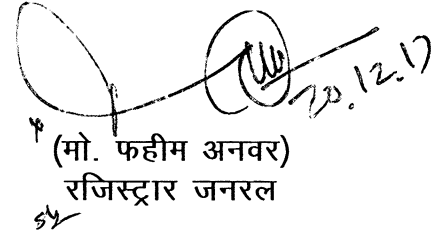 20.12.17
(मो. फहीम अनवर)
रजिस्ट्रार जनरल